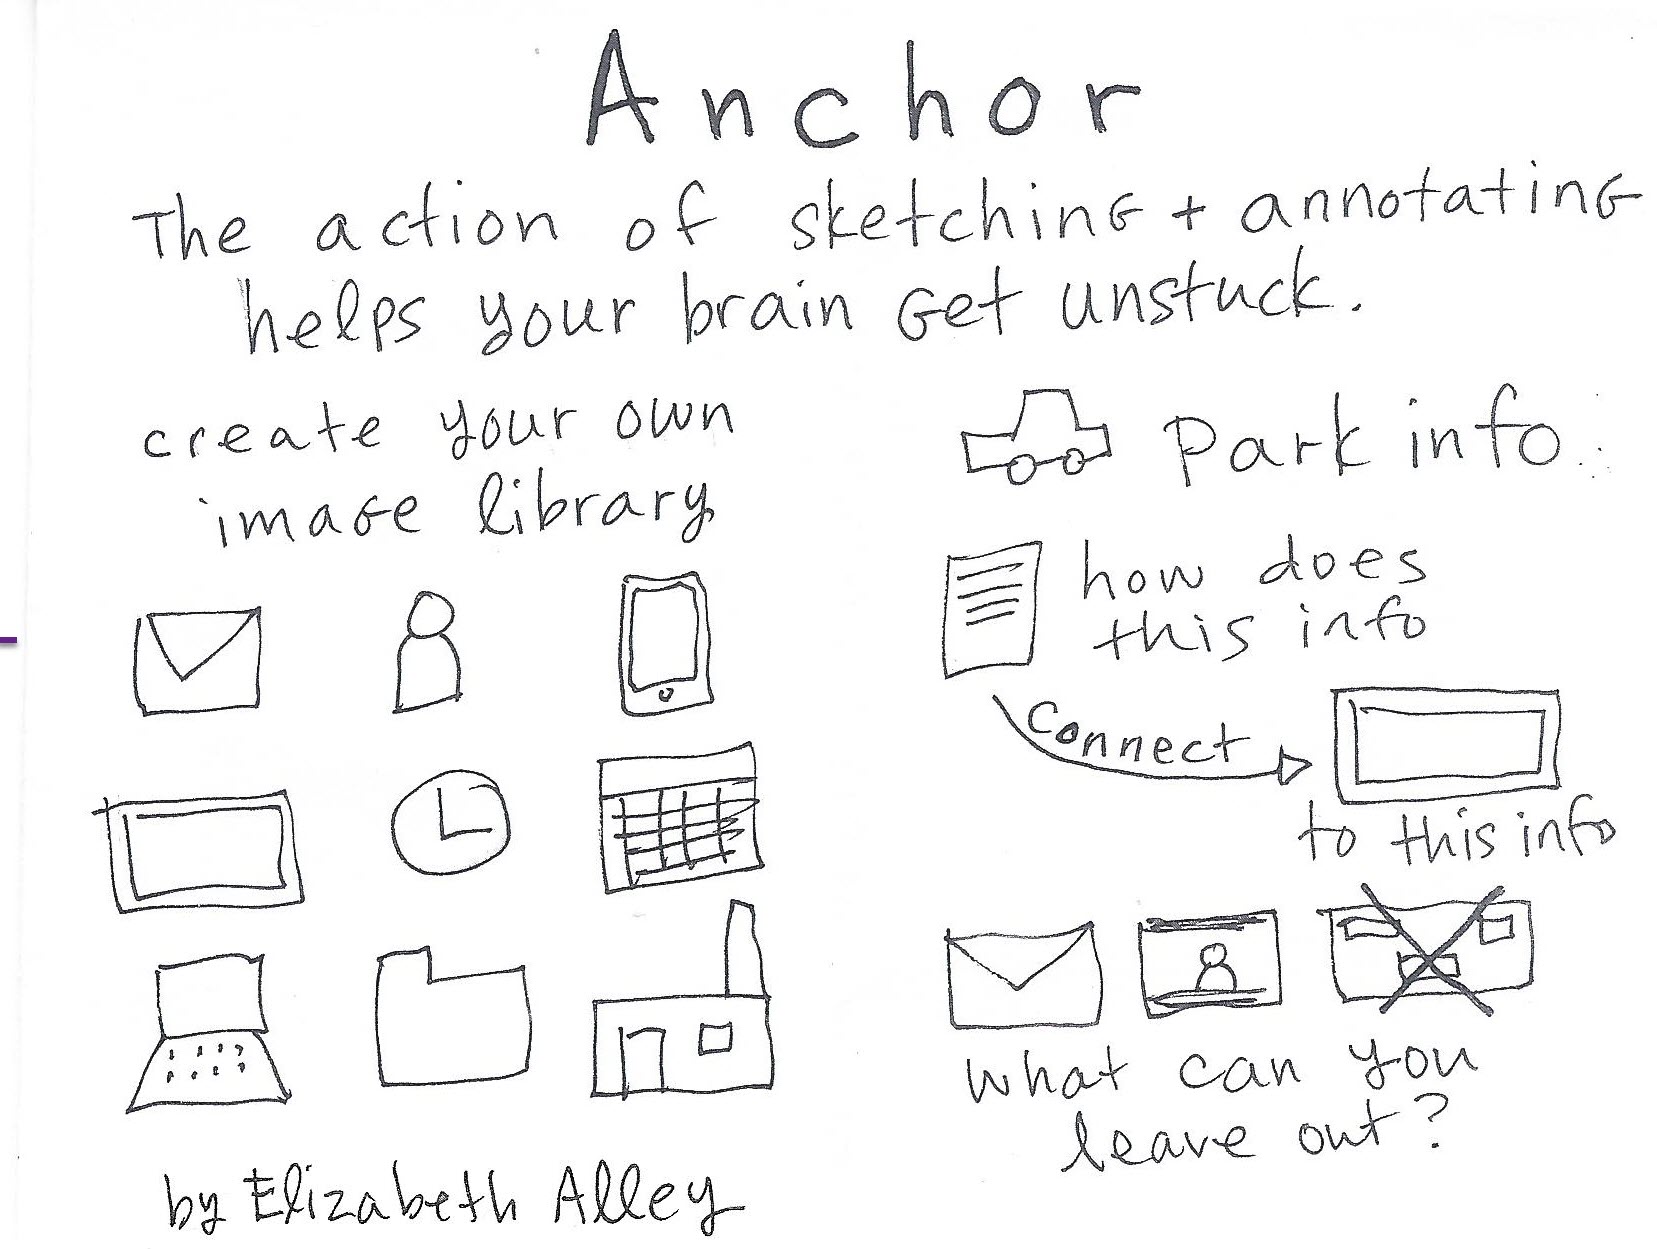 Anchor
The action of sketching + annotating
helps your brain Get unstuck.
create your own
image library
Park info
how does
this info
connect
to this info
what can you
leave out?
by Elizabeth Alley